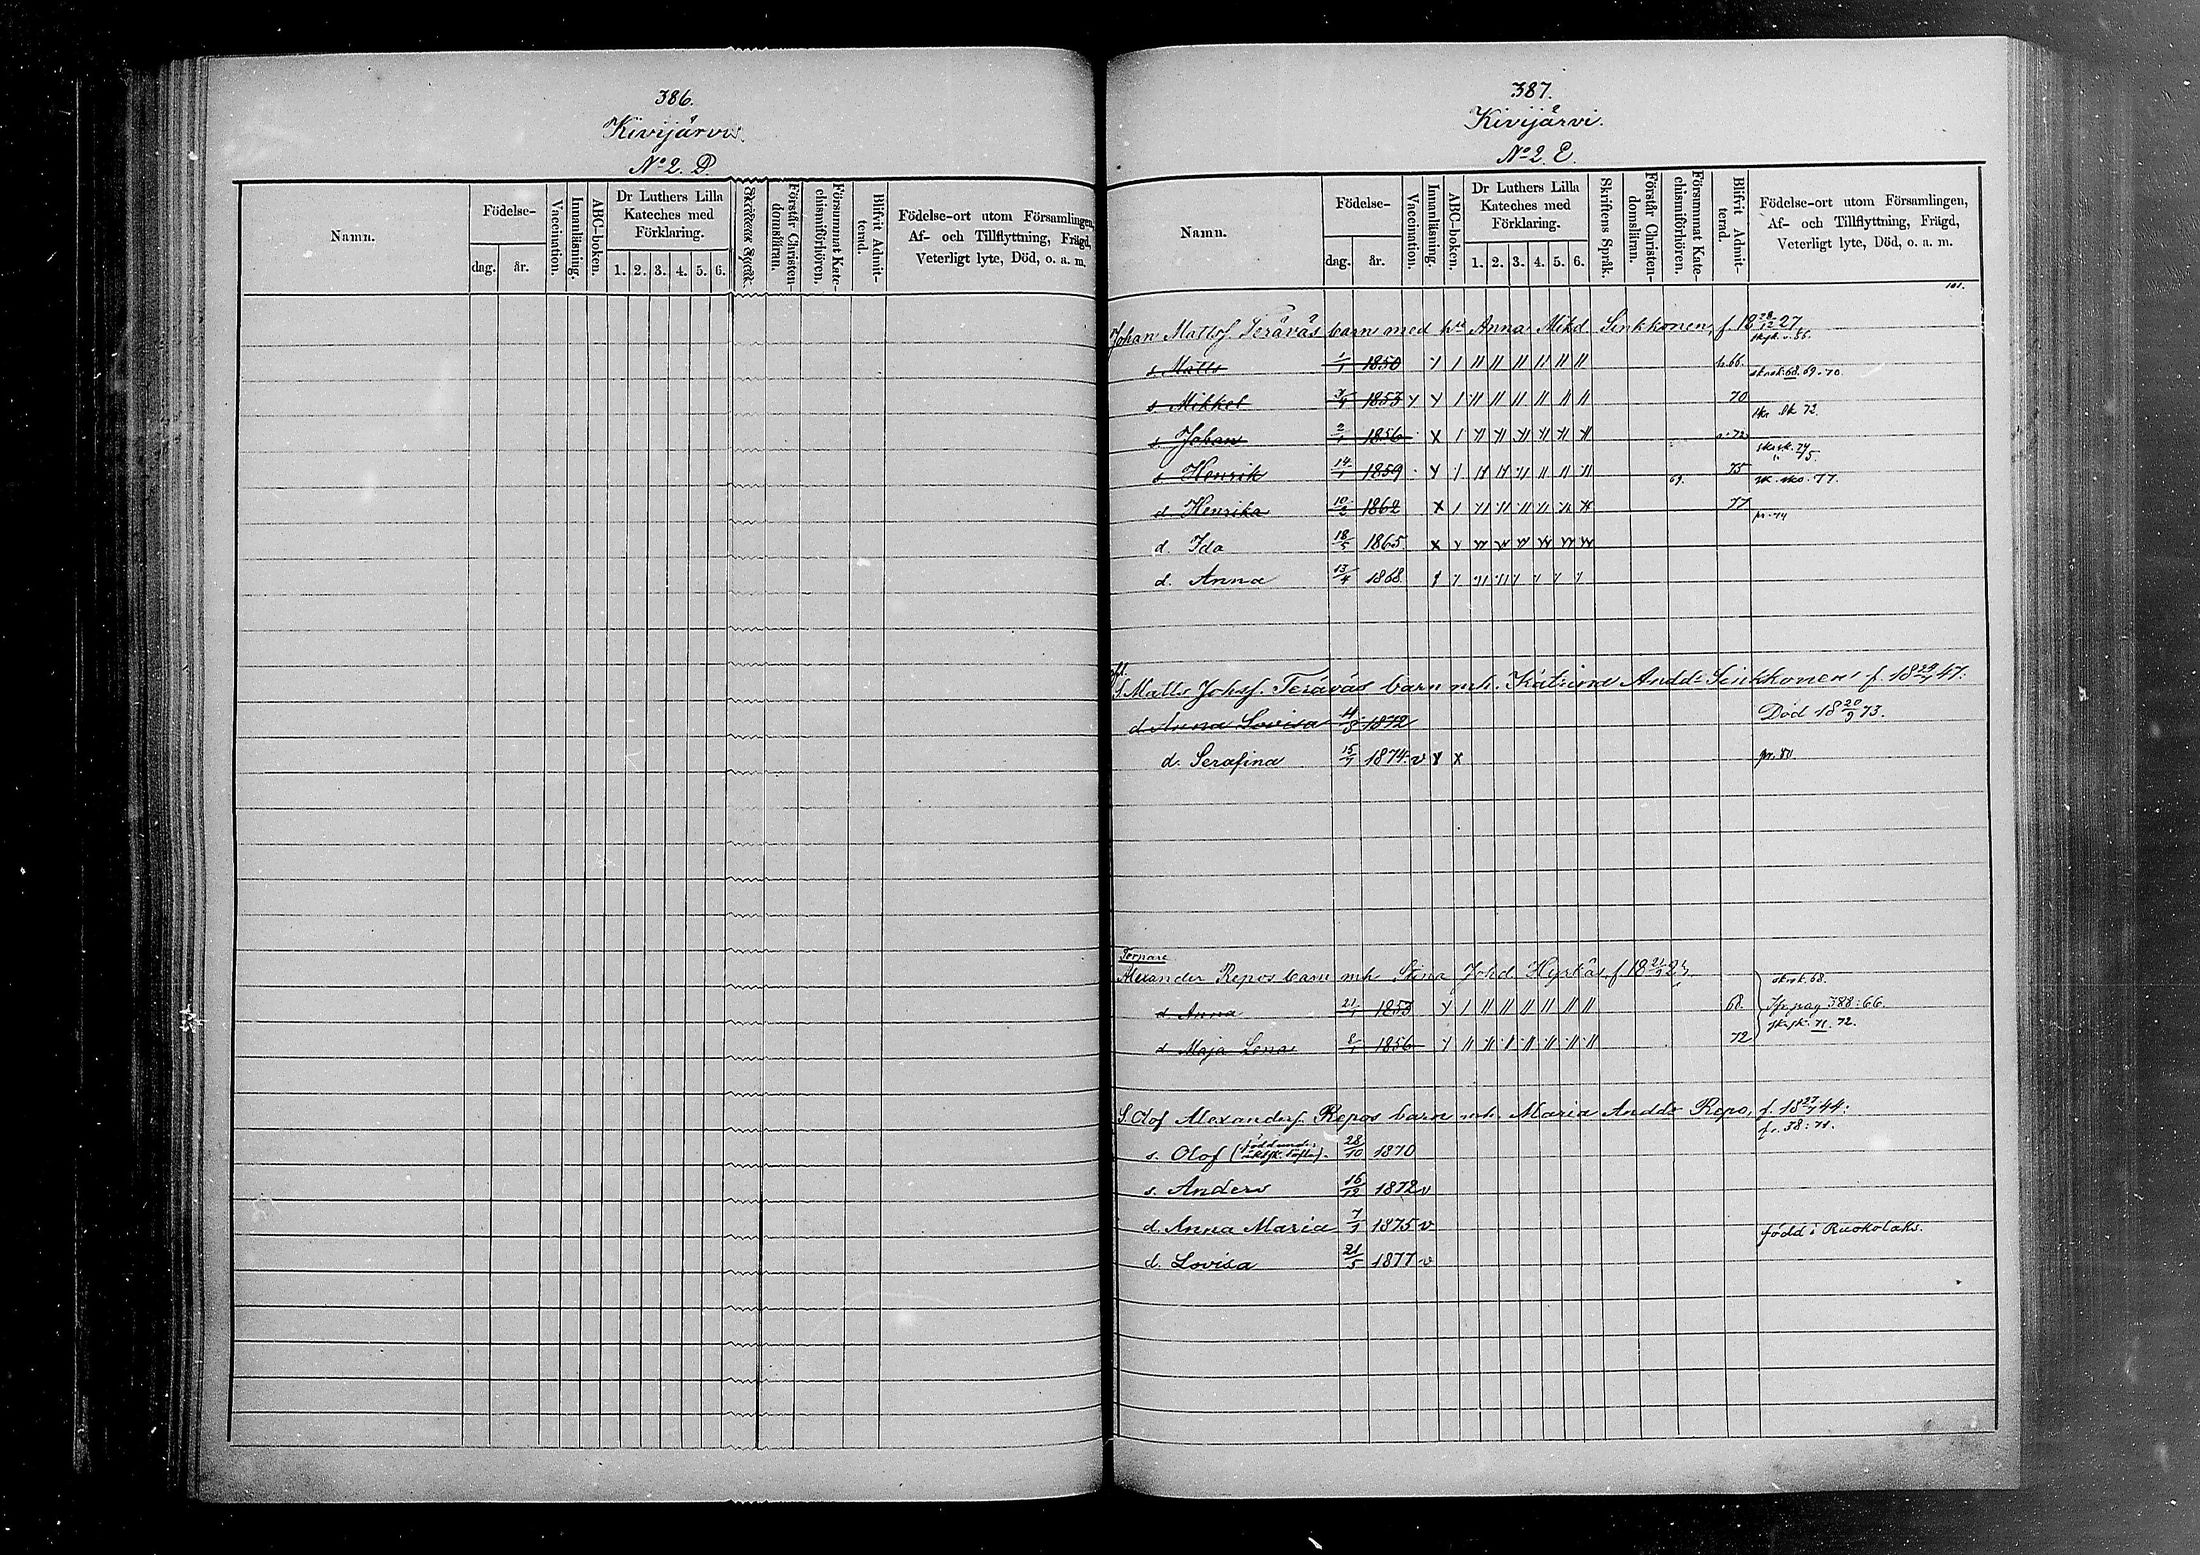 386.
Kivijärvi.
No 2. D.
Namn.
Födelse-
dag.
år.
Vaccination.
Innanläsning.
ABC-boken.
Dr Luthers Lilla
Kateches med
Förklaring.
1. 2. 3. 4. 5. 6.
Skriftens Språk.
Förstår Christen-
domsläran.
Försummat Kate-
chismiförhören.
Blifvit Admit-
terad.
Födelse-ort utom Församlingen,
Af- och Tillflyttning, Frägd,
Veterligt lyte, Död, o. a. m.
387.
Kivijärvi.
No 2. E.
Namn.
Födelse-
dag.
år.
Vaccination.
Innanläsning.
ABC-boken.
Dr Luthers Lilla
Kateches med
Förklaring.
1. 2. 3. 4. 5. 6.
Skriftens Språk.
Förstår Christen-
domsläran.
Försummat Kate-
chismiförhören.
Blifvit Admit-
terad.
Födelse-ort utom Församlingen,
Af- och Tillflyttning, Frägd,
Veterligt lyte, Död, o. a. m.
101.
Johan Mattsf. Teräväs barn med hu Anna Mikd Sinkkonen, f. 18 28/12 27
s. Matts 1/1 1850 66.
68. 69. 70
s Mikkel 1853 70
72
s. Johan 2/1 1856 72
75.
s Henrik 14/1 1859 69. 75
77.
d Henrika 1862 77
d. Ida 18/5 1865
d. Anna 13/4 1868
S. Matts Johsf. Teräväs barn mh. Katrina Andd. Sinkkonen f. 18 47.
d Anna Lovisa 1872 Död 18 20/9 73.
d. Serafina 1874 v gr. 80
Torpare
Alexander Repos barn mh Stina Johd Hyrkäs, f 18
skrsk. 68.
d Anna 21/1 1853 68. pag 388:66.
71. 72.
d Maja Lena 8/1 1856 72
S. Olof Alexandersf. Repos barn mh. Maria Andd. Repo, f. 18 44:
fr. 38:71.
s. Olof 28/10 1870
s. Anders 16/12 1872 v
d. Anna Maria 1875 v född i Ruokolaks.
d. Lovisa 21/5 1877 v